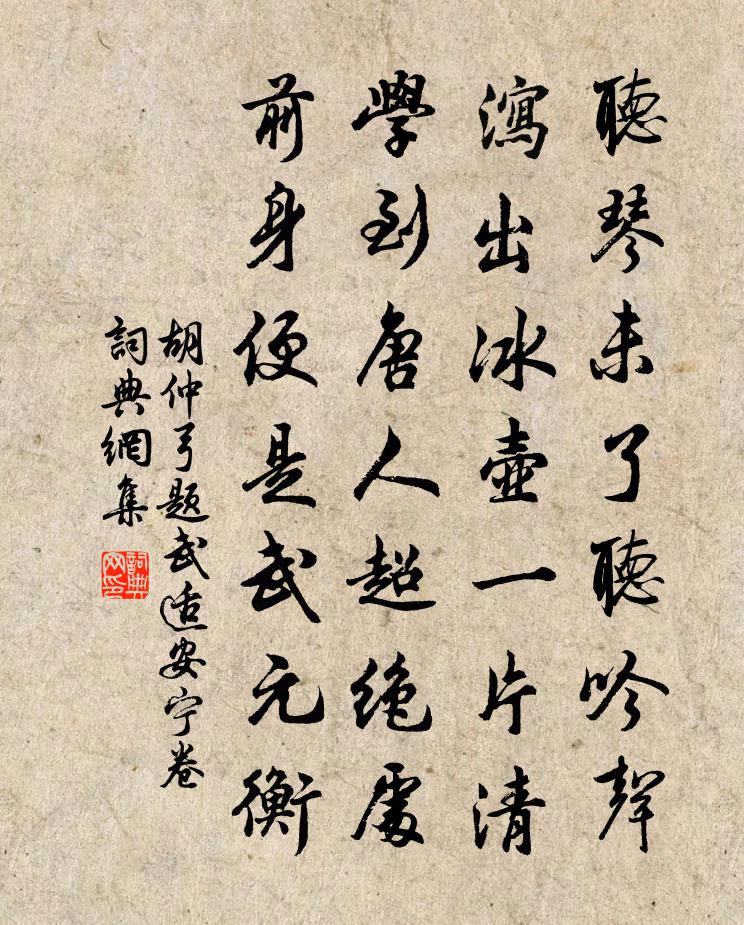 聽琴未了聽吟聲
瀉出冰壺一片清
學到唐人超絕處
前身便是武元衡
胡仲弓題武适安宁卷
詞典網集
詞典网印